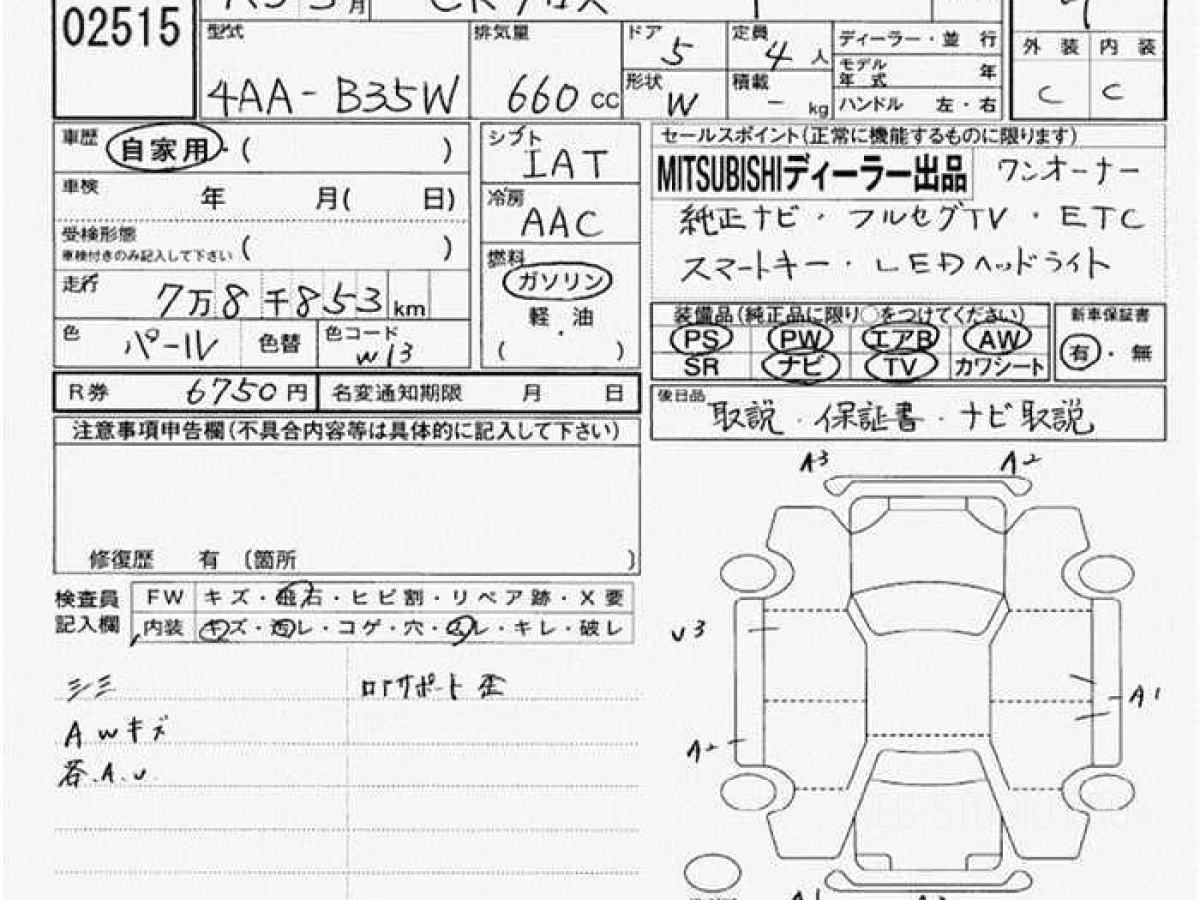 02515
型式 4AA-B35W
排気量 660 cc
ドア 5
定員 4 人
形状 W
積載 - kg
ディーラー・並 行
モデル年式 年
ハンドル 左・右
外 装 内 装
C C
車歴 自家用・( )
車検 年 月( 日)
受検形態
車検付きのみ記入して下さい ( )
走行 7万8千853 km
色 パール 色替 色コード W13
シフト IAT
冷房 AAC
燃料 ガソリン
軽・油
( )
セールスポイント(正常に機能するものに限ります)
MITSUBISHIディーラー出品 ワンオーナー
純正ナビ・フルセグTV・ETC
スマートキー・LEDヘッドライト
装備品(純正品に限り○をつけてください)
PS PW エアB AW
SR ナビ TV カワシート
新車保証書
有・無
後日品 取説・保証書・ナビ取説
R券 6750円 名変通知期限 月 日
注意事項申告欄(不具合内容等は具体的に記入して下さい)
修復歴 有 (箇所 )
検査員記入欄
FW キズ・飛石・ヒビ割・リペア跡・X要
内装 キズ・汚レ・コゲ・穴・スレ・キレ・破レ
シミ
AWキズ
各.A.U.
コアサポート歪
A3 A2
U3
A1
A2